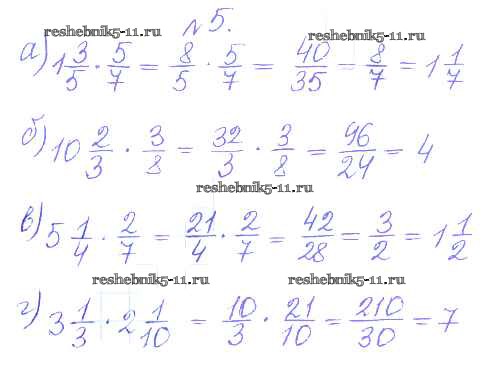 reshebnik5-11.ru
№5.
reshebnik5-11.ru
а) 1 3/5 · 5/7 = 8/5 · 5/7 = 40/35 = 8/7 = 1 1/7
б) 10 2/3 · 3/8 = 32/3 · 3/8 = 96/24 = 4
reshebnik5-11.ru
в) 5 1/4 · 2/7 = 21/4 · 2/7 = 42/28 = 3/2 = 1 1/2
reshebnik5-11.ru reshebnik5-11.ru
г) 3 1/3 · 2 1/10 = 10/3 · 21/10 = 210/30 = 7